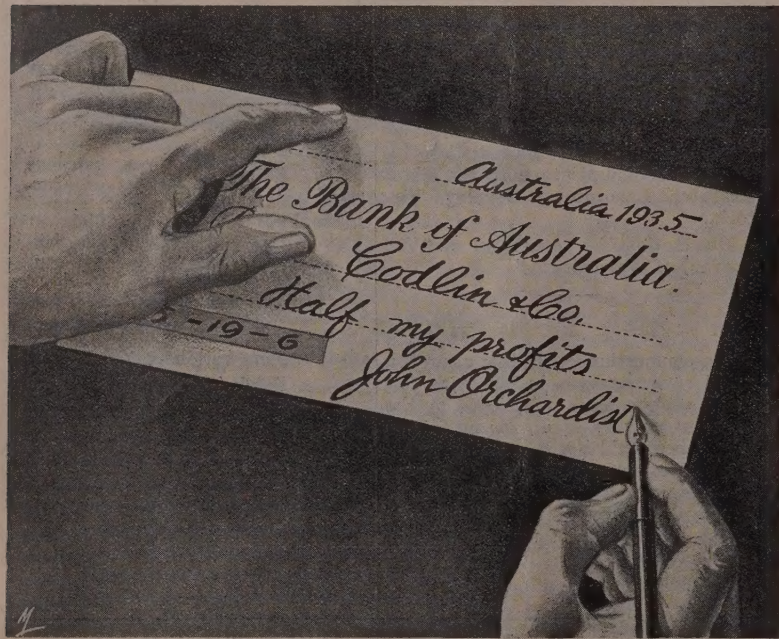 Australia 1935
The Bank of Australia.
Codlin & Co.
Half my profits
5-19-6
John Orchardist